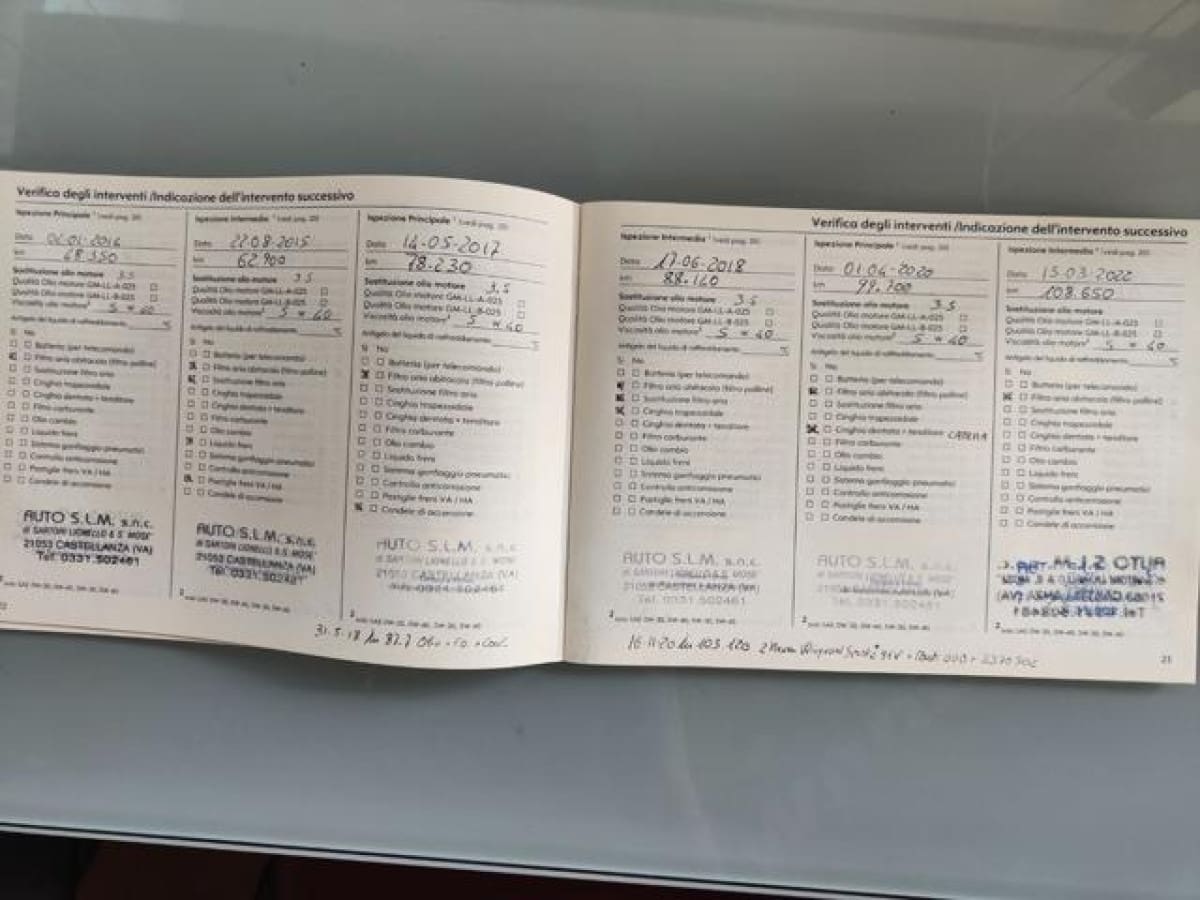 Verifica degli interventi /Indicazione dell'intervento successivo
Ispezione Principale ¹ (vedi pag. 20)
Data
km
Sostituzione olio motore 3.5
Qualità Olio motore GM-LL-A-025
Qualità Olio motore GM-LL-B-025
Viscosità olio motore² 5 * 40
Antigelo del liquido di raffreddamento
Sì No
Batteria (per telecomando)
Filtro aria abitacolo (filtro polline)
Sostituzione filtro aria
Cinghia trapezoidale
Cinghia dentata + tenditore
Filtro carburante
Olio cambio
Liquido freni
Sistema gonfiaggio pneumatici
Controllo anticorrosione
Pastiglie freni VA / HA
Candele di accensione
AUTO S.L.M. s.n.c.
di SARTORI LIONELLO & S. MOSE'
21053 CASTELLANZA (VA)
Tel. 0331.502461
Ispezione Intermedia ¹ (vedi pag. 20)
Data 22.08-2015
km 62.900
Sostituzione olio motore 3.5
Qualità Olio motore GM-LL-A-025
Qualità Olio motore GM-LL-B-025
Viscosità olio motore² 5 * 40
Antigelo del liquido di raffreddamento
Sì No
Batteria (per telecomando)
Filtro aria abitacolo (filtro polline)
Sostituzione filtro aria
Cinghia trapezoidale
Cinghia dentata + tenditore
Filtro carburante
Olio cambio
Liquido freni
Sistema gonfiaggio pneumatici
Controllo anticorrosione
Pastiglie freni VA / HA
Candele di accensione
AUTO S.L.M. s.n.c.
di SARTORI LIONELLO & S. MOSE'
21053 CASTELLANZA (VA)
Tel. 0331.502461
Ispezione Principale ¹ (vedi pag. 20)
Data 14-05-2017
km 78.230
Sostituzione olio motore 3,5
Qualità Olio motore GM-LL-A-025
Qualità Olio motore GM-LL-B-025
Viscosità olio motore² 5 * 40
Antigelo del liquido di raffreddamento
Sì No
Batteria (per telecomando)
Filtro aria abitacolo (filtro polline)
Sostituzione filtro aria
Cinghia trapezoidale
Cinghia dentata + tenditore
Filtro carburante
Olio cambio
Liquido freni
Sistema gonfiaggio pneumatici
Controllo anticorrosione
Pastiglie freni VA / HA
Candele di accensione
AUTO S.L.M. s.n.c.
di SARTORI LIONELLO & S. MOSE'
21053 CASTELLANZA (VA)
Tel. 0331.502461
31.5.18 km
Verifica degli interventi /Indicazione dell'intervento successivo
Ispezione Intermedia ¹ (vedi pag. 20)
Data 17-06-2018
km 88.140
Sostituzione olio motore 3.5
Qualità Olio motore GM-LL-A-025
Qualità Olio motore GM-LL-B-025
Viscosità olio motore² 5 * 40
Antigelo del liquido di raffreddamento
Sì No
Batteria (per telecomando)
Filtro aria abitacolo (filtro polline)
Sostituzione filtro aria
Cinghia trapezoidale
Cinghia dentata + tenditore
Filtro carburante
Olio cambio
Liquido freni
Sistema gonfiaggio pneumatici
Controllo anticorrosione
Pastiglie freni VA / HA
Candele di accensione
AUTO S.L.M. s.n.c.
di SARTORI LIONELLO & S. MOSE'
21053 CASTELLANZA (VA)
Tel. 0331.502461
Ispezione Principale ¹ (vedi pag. 20)
Data 01.04-2020
km 98.200
Sostituzione olio motore 3.5
Qualità Olio motore GM-LL-A-025
Qualità Olio motore GM-LL-B-025
Viscosità olio motore² 5 * 40
Antigelo del liquido di raffreddamento
Sì No
Batteria (per telecomando)
Filtro aria abitacolo (filtro polline)
Sostituzione filtro aria
Cinghia trapezoidale
Cinghia dentata + tenditore CATENA
Filtro carburante
Olio cambio
Liquido freni
Sistema gonfiaggio pneumatici
Controllo anticorrosione
Pastiglie freni VA / HA
Candele di accensione
AUTO S.L.M. s.n.c.
Tel. 0331.502461
Ispezione Intermedia ¹ (vedi pag. 20)
Data 15-03-2022
km 108.650
Sostituzione olio motore
Qualità Olio motore GM-LL-A-025
Qualità Olio motore GM-LL-B-025
Viscosità olio motore² 5 * 40
Antigelo del liquido di raffreddamento
Sì No
Batteria (per telecomando)
Filtro aria abitacolo (filtro polline)
Sostituzione filtro aria
Cinghia trapezoidale
Cinghia dentata + tenditore
Filtro carburante
Olio cambio
Liquido freni
Sistema gonfiaggio pneumatici
Controllo anticorrosione
Pastiglie freni VA / HA
Candele di accensione
16-11-20 km 103.120
21